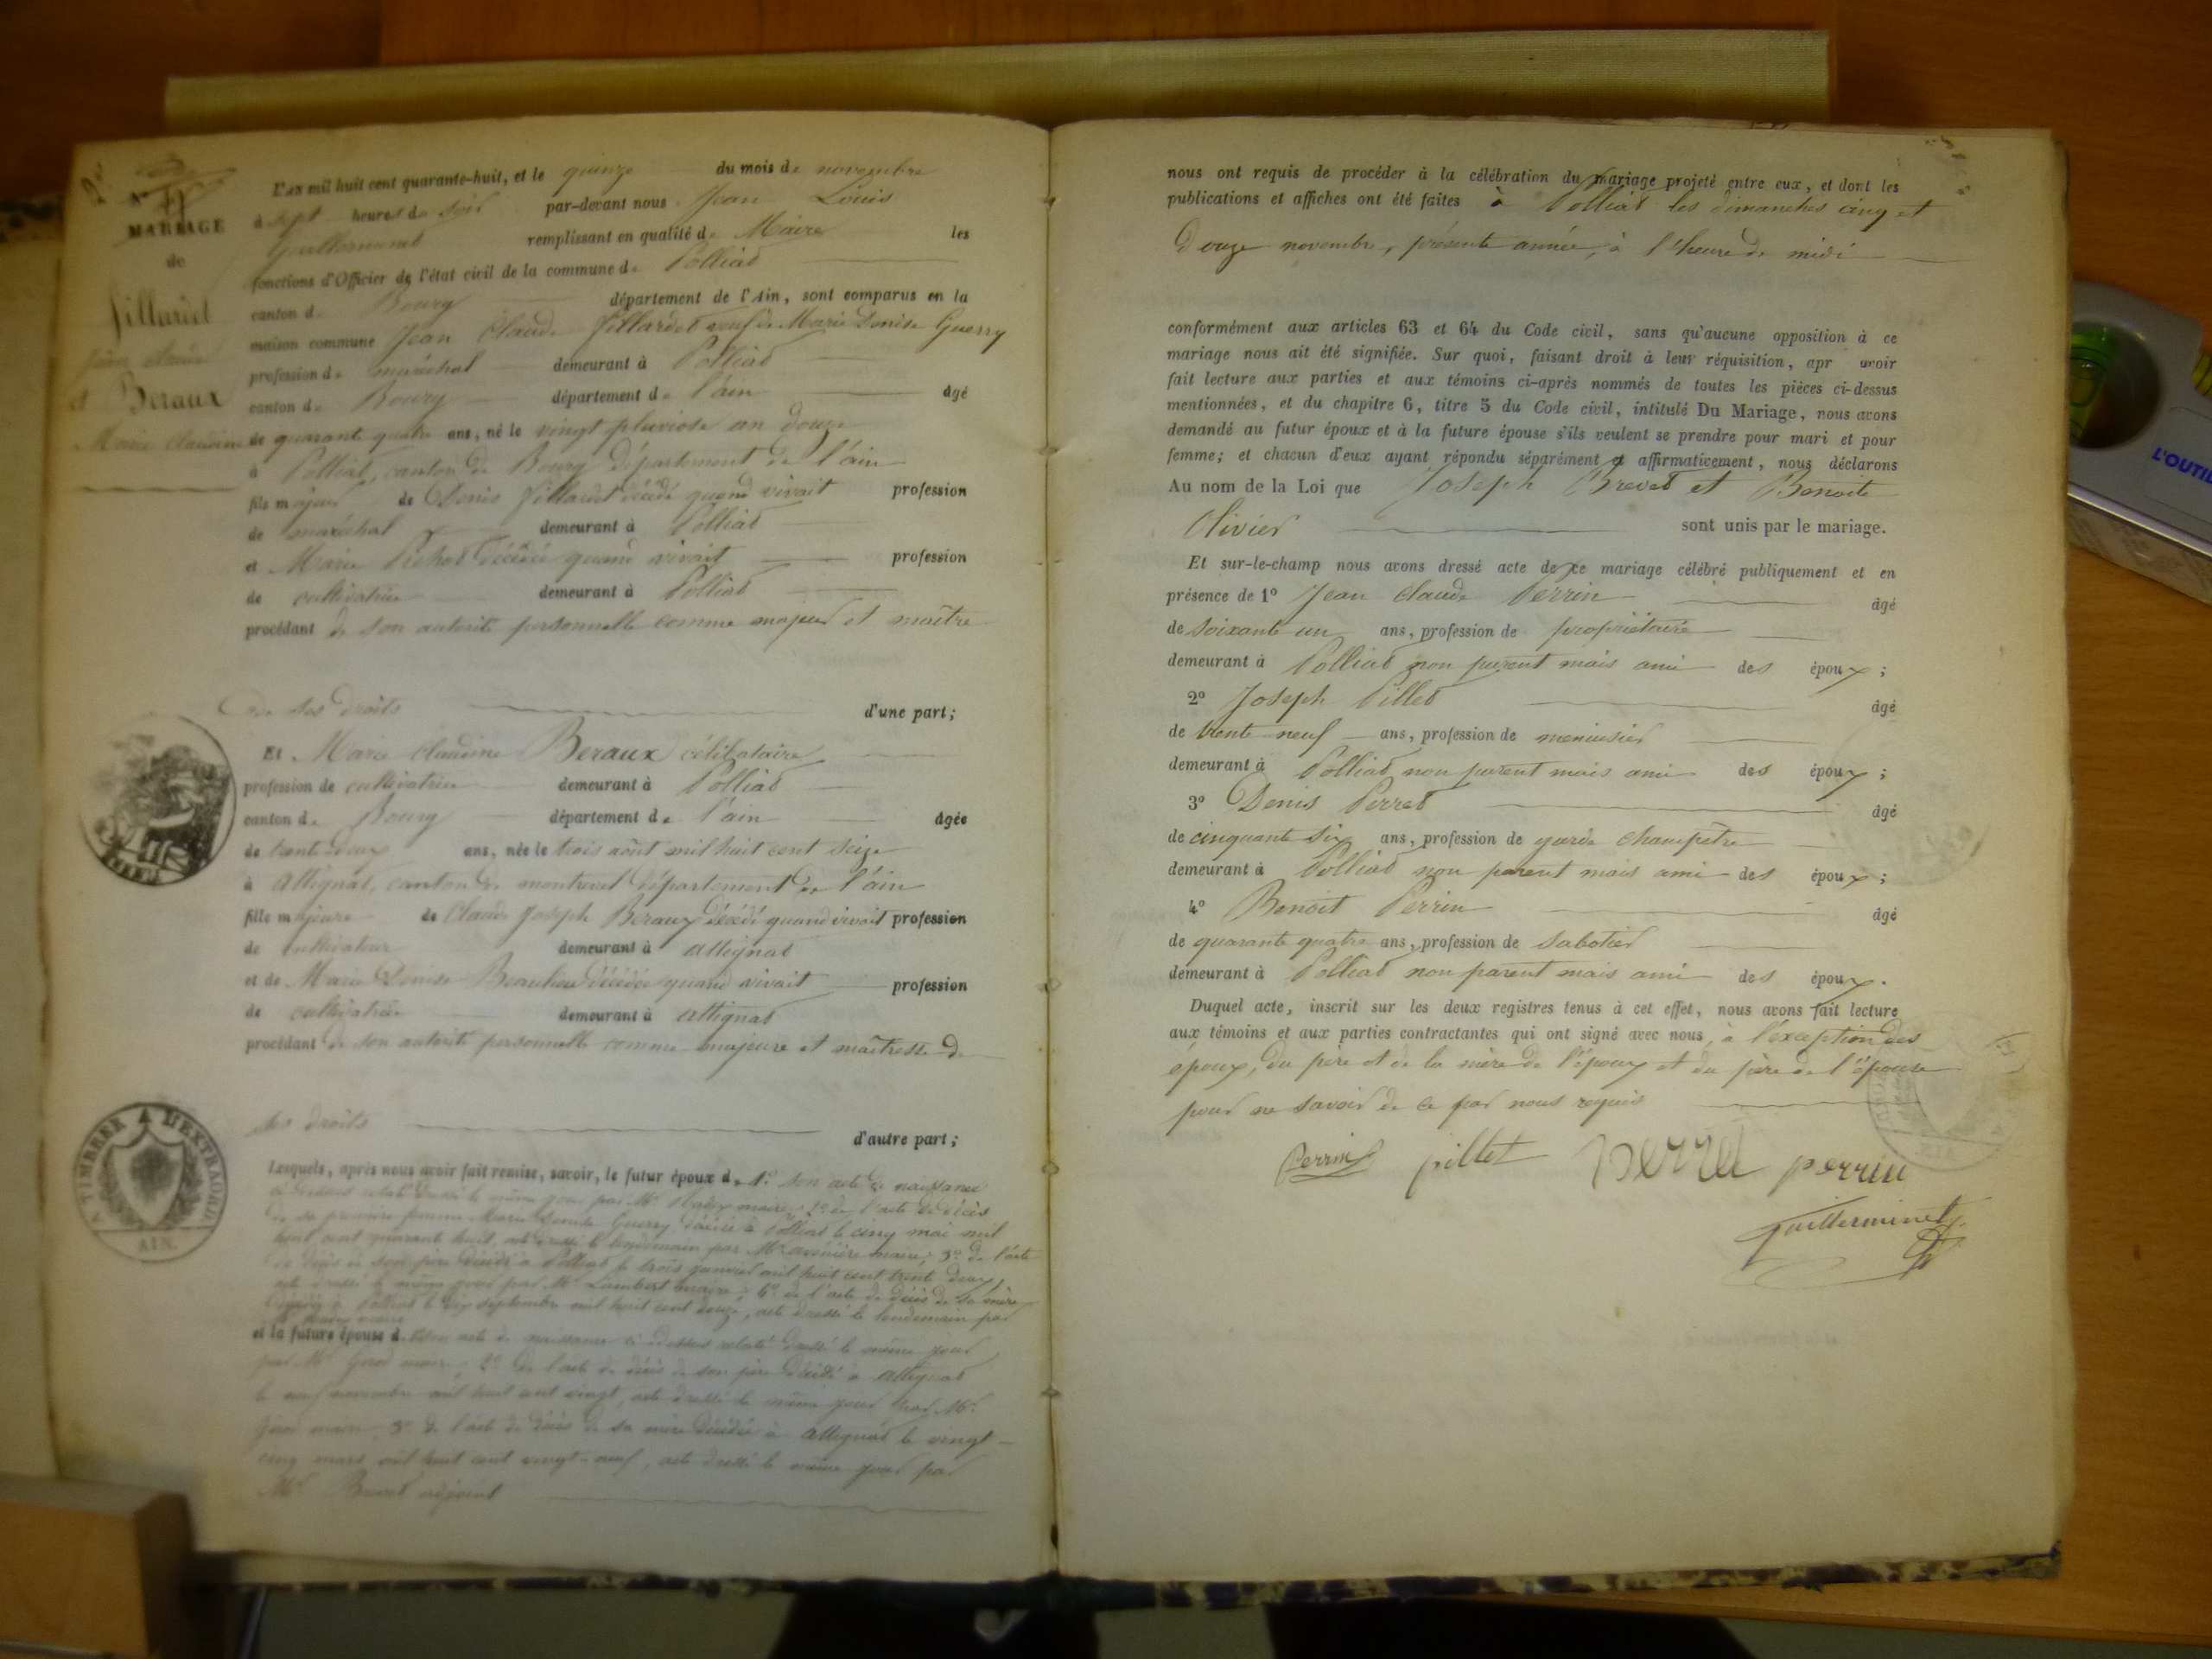 N° 11
MARIAGE
de
Fillardet
Jean Claude
et Beraux
Marie Claudine
L'an mil huit cent quarante-huit, et le quinze du mois de novembre
à sept heures du soir par-devant nous Jean Louis
Guillerminet remplissant en qualité de Maire les
fonctions d'Officier de l'état civil de la commune de Polliat
canton de Bourg département de l'Ain, sont comparus en la
maison commune Jean Claude Fillardet veuf de Marie Denise Guerry
profession de maréchal demeurant à Polliat
canton de Bourg département de l'ain âgé
de quarante quatre ans, né le vingt pluviose an douze
à Polliat, canton de Bourg département de l'ain
fils majeur de Denis Fillardet décédé quand vivait profession
de maréchal demeurant à Polliat
et Marie décédée quand vivait profession
de cultivatrice demeurant à Polliat
procédant de son autorité personnelle comme majeur et maître
de ses droits d'une part;
Et Marie Claudine Beraux célibataire
profession de cultivatrice demeurant à Polliat
canton de Bourg département de l'ain âgée
de trente deux ans, née le trois août mil huit cent seize
à Attignat, canton de montrevel département de l'ain
fille majeure de Claude Joseph Beraux décédé quand vivait profession
de cultivateur demeurant à attignat
et de Marie Denise décédée quand vivait profession
de cultivatrice demeurant à attignat
procédant de son autorité personnelle comme majeure et maîtresse de
ses droits d'autre part;
A TIMBRER A L'EXTRAORD.
AIN.
Lesquels, après nous avoir fait remise, savoir, le futur époux de 1° son acte de naissance
ci-dessus relaté dressé le même jour par Mr maire; 2° de l'acte de décès
de sa première femme Marie Denise Guerry décédée à Polliat le cinq mai mil
huit cent quarante huit, acte dressé le lendemain par Mr maire; 3° de l'acte
de décès de son père décédé à Polliat le trois janvier mil huit cent trente deux,
acte dressé le même jour par Mr Lambert maire; 4° de l'acte de décès de sa mère
décédée à Polliat le dix septembre mil huit cent douze, acte dressé le lendemain par
maire
et la future épouse de 1° son acte de naissance ci-dessus relaté dressé le même jour
par Mr maire; 2° de l'acte de décès de son père décédé à attignat
le neuf novembre mil huit cent vingt, acte dressé le même jour par Mr
maire 3° de l'acte de décès de sa mère décédée à attignat le vingt
cinq mars mil huit cent vingt-neuf, acte dressé le même jour par
Mr adjoint
nous ont requis de procéder à la célébration du mariage projeté entre eux, et dont les
publications et affiches ont été faites à Polliat les dimanches cinq et
douze novembre, présente année, à l'heure de midi
conformément aux articles 63 et 64 du Code civil, sans qu'aucune opposition à ce
mariage nous ait été signifiée. Sur quoi, faisant droit à leur réquisition, apr avoir
fait lecture aux parties et aux témoins ci-après nommés de toutes les pièces ci-dessus
mentionnées, et du chapitre 6, titre 5 du Code civil, intitulé Du Mariage, nous avons
demandé au futur époux et à la future épouse s'ils veulent se prendre pour mari et pour
femme; et chacun d'eux ayant répondu séparément et affirmativement, nous déclarons
Au nom de la Loi que Joseph Brevet et Benoite
Olivier sont unis par le mariage.
Et sur-le-champ nous avons dressé acte de ce mariage célébré publiquement et en
présence de 1° Jean Claude Perrin âgé
de soixante un ans, profession de propriétaire
demeurant à Polliat non parent mais ami des époux;
2° Joseph Pillet âgé
de trente neuf ans, profession de menuisier
demeurant à Polliat non parent mais ami des époux;
3° Denis Perret âgé
de cinquante six ans, profession de garde champêtre
demeurant à Polliat non parent mais ami des époux;
4° Benoit Perrin âgé
de quarante quatre ans, profession de sabotier
demeurant à Polliat non parent mais ami des époux.
Duquel acte, inscrit sur les deux registres tenus à cet effet, nous avons fait lecture
aux témoins et aux parties contractantes qui ont signé avec nous, à l'exception des
époux, du père et de la mère de l'époux et du père de l'épouse
pour ne savoir de ce par nous requis
Perrin pillet perret perrin
Guillerminet
L'OUTIL